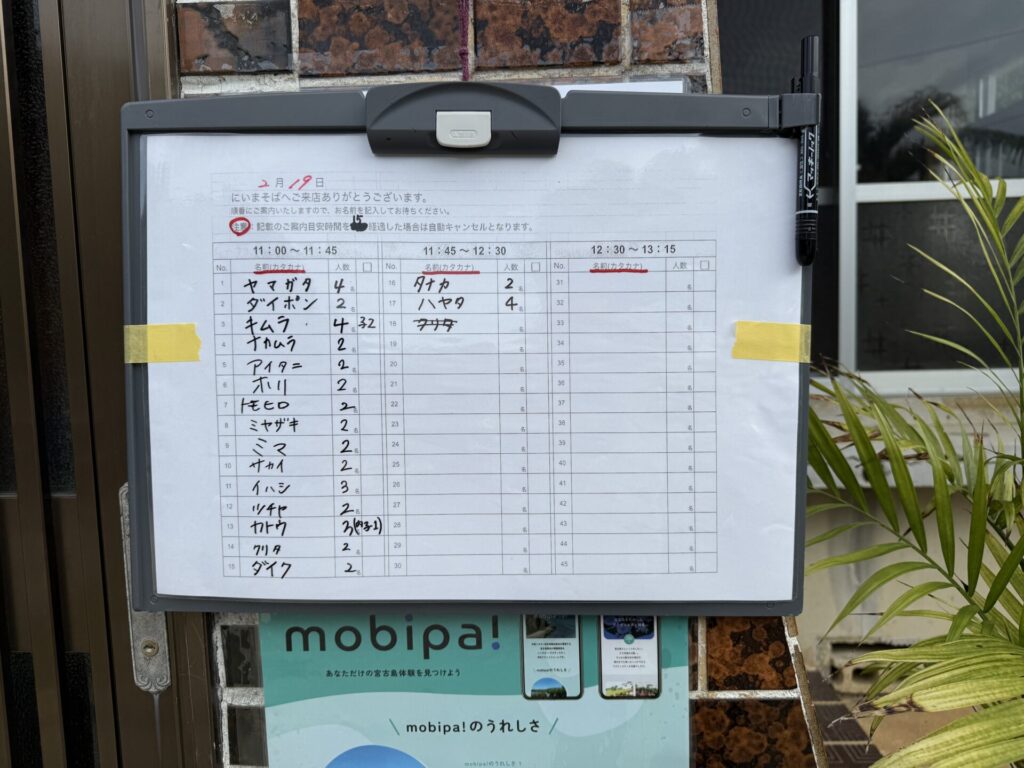 2月19日
にいまそばへご来店ありがとうございます。
順番にご案内いたしますので、お名前を記入してお待ちください。
注意：記載のご案内目安時間を15経過した場合は自動キャンセルとなります。
11：00 〜 11：45 11：45 〜 12：30 12：30 〜 13：15
No. 名前(カタカナ) 人数 □ No. 名前(カタカナ) 人数 □ No. 名前(カタカナ) 人数 □
1 ヤマガタ 4名 16 タナカ 2名 31 名
2 ダイポン 2名 17 ハヤタ 4名 32 名
3 キムラ 4名 子2 18 クリタ 名 33 名
4 ナカムラ 2名 19 名 34 名
5 アイタニ 2名 20 名 35 名
6 ホリ 2名 21 名 36 名
7 トモヒロ 2名 22 名 37 名
8 ミヤザキ 2名 23 名 38 名
9 ミマ 2名 24 名 39 名
10 サカイ 2名 25 名 40 名
11 イハシ 3名 26 名 41 名
12 ツチヤ 2名 27 名 42 名
13 カトウ 3 28 名 43 名
14 クリタ 2名 29 名 44 名
15 ダイク 2名 30 名 45 名
mobipa!
あなただけの宮古島体験を見つけよう
mobipa!のうれしさ
mobipa!のうれしさ 1